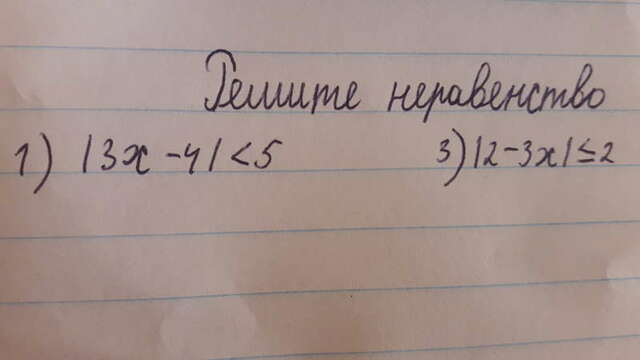 Решите неравенство
1) |3x - 4| < 5 3) |2 - 3x| ≤ 2